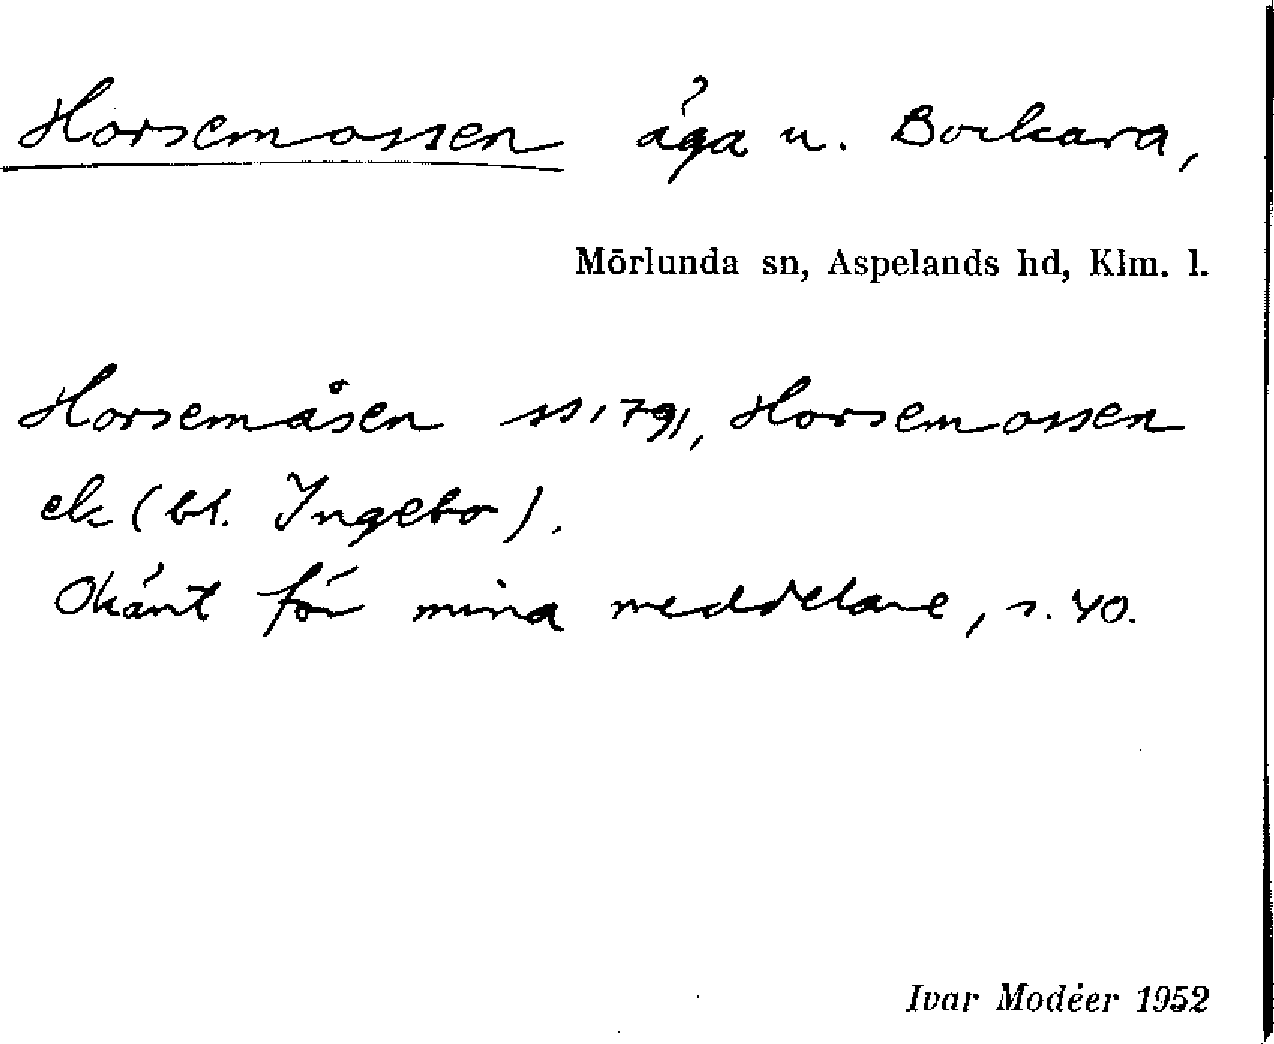 Horsemossen äga u. Bockara,
Mörlunda sn, Aspelands hd, Klm. l.
Horsemåsen ss 1791, Horsemossen
ek (bl. Ingebo).
Okänt för mina meddelare, s. 40.
Ivar Modéer 1952